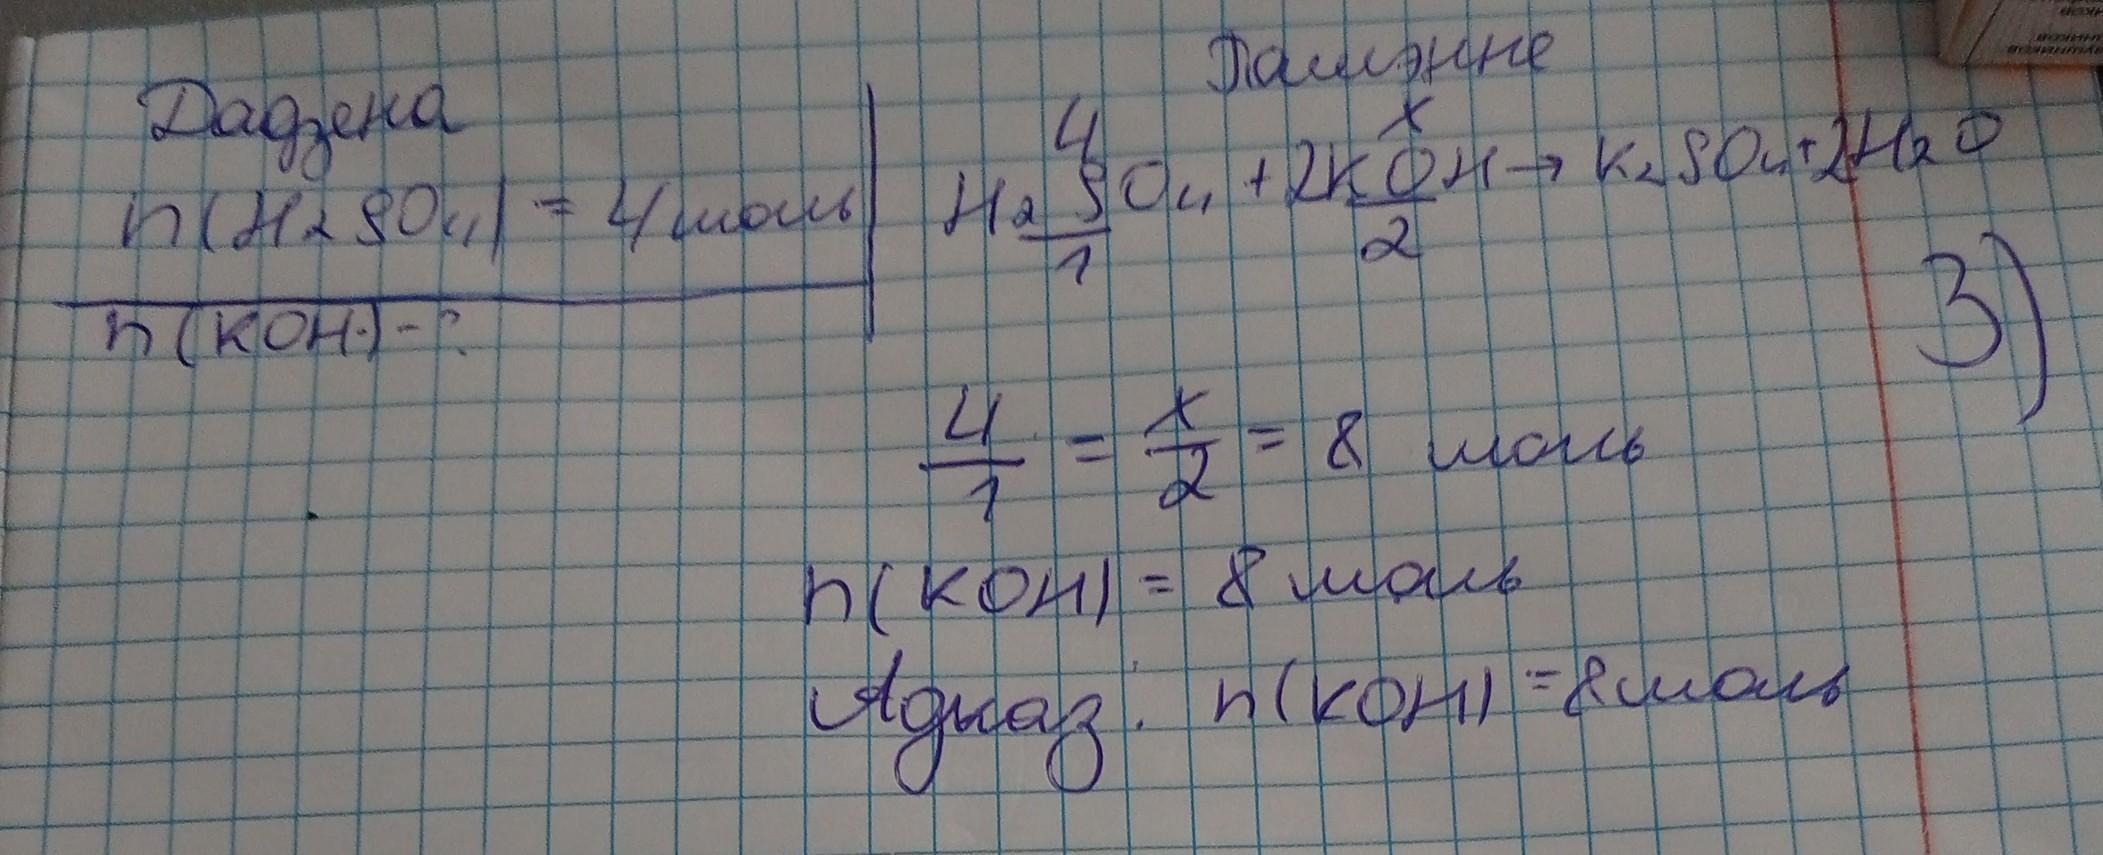 Дадзена
n(H₂SO₄) = 4 моль
n(KOH) - ?
Рашэнне
4 x
H₂SO₄ + 2KOH → K₂SO₄ + 2H₂O
1 2
3)
4/1 = x/2 = 8 моль
n(KOH) = 8 моль
Адказ: n(KOH) = 8 моль